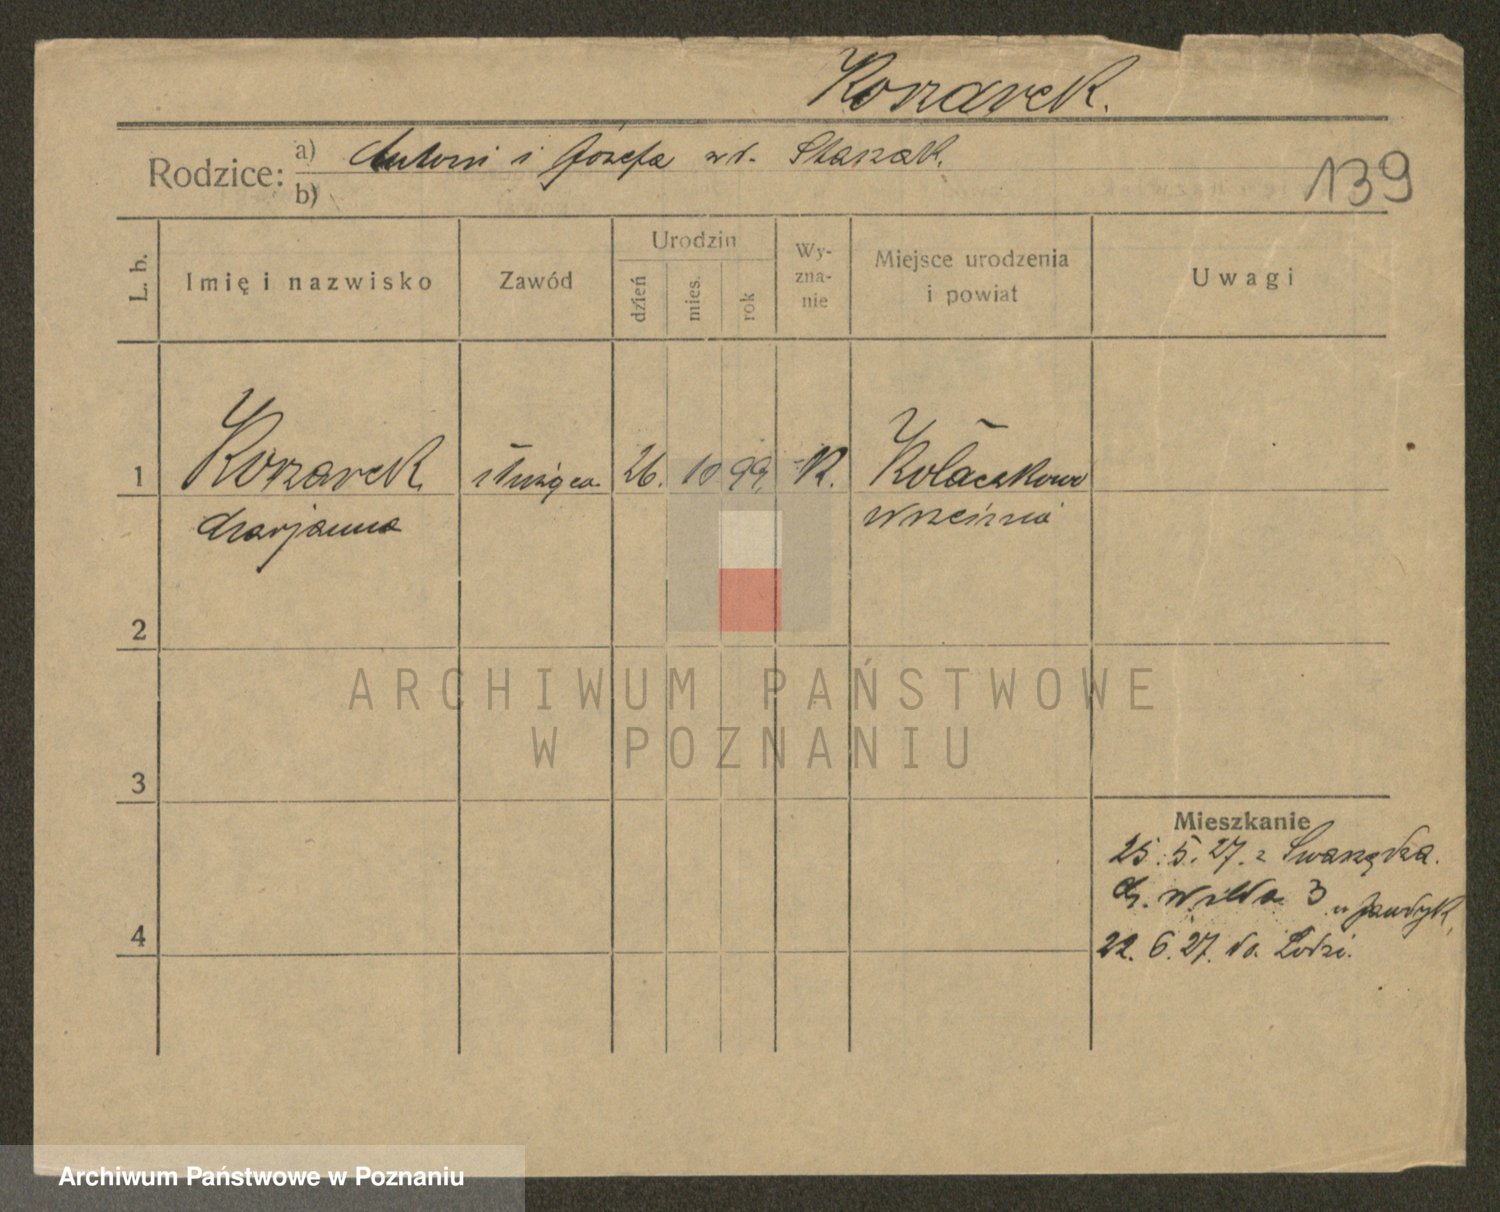 Kozarek.
Rodzice: a) Antoni i Józefa z d. Staszak.
b)
139
L. b.
Imię i nazwisko
Zawód
Urodzin
dzień
mies.
rok
Wy-
zna-
nie
Miejsce urodzenia
i powiat
Uwagi
1 Kozarek służąca 26. 10 99. K. Kołaczkowo
Marjanna Września
2
ARCHIWUM PAŃSTWOWE
W POZNANIU
3
Mieszkanie
25. 5. 27. z Swarzędza.
G. Wilda 3 u Jandyk,
4
22. 6. 27. do Łodzi.
Archiwum Państwowe w Poznaniu